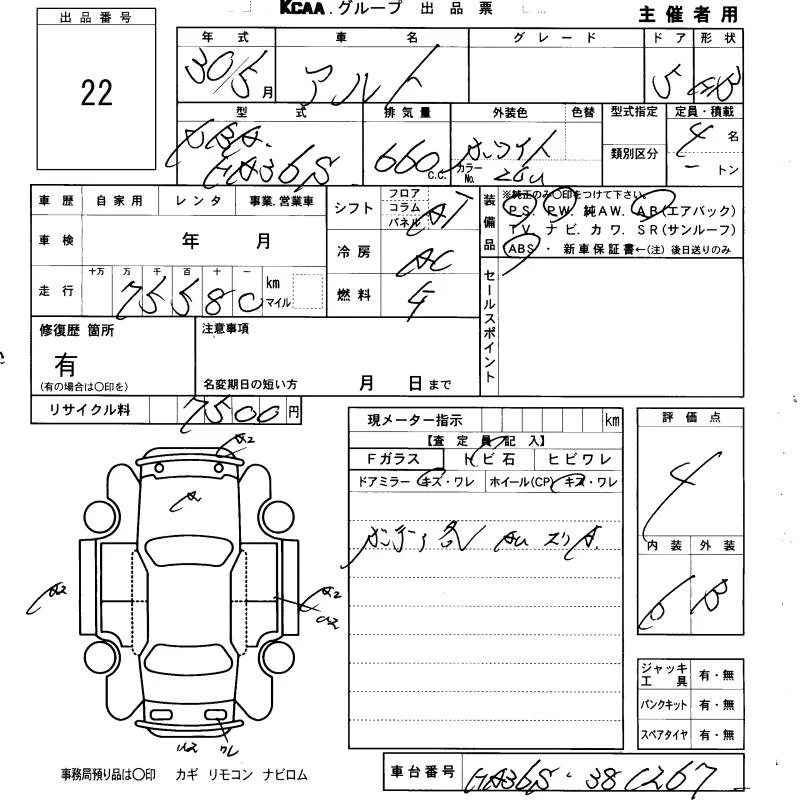 KCAA.グループ 出品票
主催者用
出品番号
22
年式 車名 グレード ドア 形状
30/5月 アルト 5 HB
型式 排気量 外装色 色替 型式指定 定員・積載
DBA-
HA36S 660 c.c. ホワイト
カラーNo. 26U
類別区分
4名
ートン
車歴 自家用 レンタ 事業.営業車
車検 年 月
走行 十万 万 千 百 十 一 km マイル
75580
シフト フロア コラム パネル AT
冷房 AC
燃料
装備品
※純正のみ○印をつけて下さい。
PS. PW. 純AW. AB(エアバック)
TV. ナビ. カワ. SR(サンルーフ)
ABS ・ 新車保証書←(注)後日送りのみ
セールスポイント
修復歴 箇所
有
(有の場合は○印を)
注意事項
名変期日の短い方 月 日まで
リサイクル料 7500円
現メーター指示 km
【査定員記入】
Fガラス トビ石 ヒビワレ
ドアミラー キズ・ワレ ホイール(CP) キズ・ワレ
評価点
4
内装 外装
B B
A2
A
A2
A2
U2
U2 ワレ
ジャッキ工具 有・無
パンクキット 有・無
スペアタイヤ 有・無
事務局預り品は○印 カギ リモコン ナビロム
車台番号 HA36S-380267